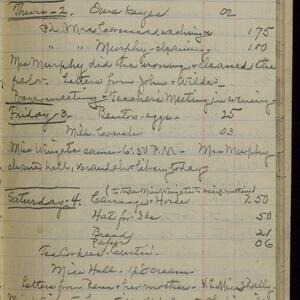 Thurs - 2. One keyes 02
Pd. Mrs Coomes washing 1 75
" " Murphy - cleaning - 1 00
Mrs Murphy did the ironing & cleaned the
parlor. Letters from John & Wilder.
meeting & Teacher's Meeting in evening
Friday 3. eggs - 25
Milk 03
Miss Wingate came - 6:50 P.M - Mrs Murphy
cleaned hall, veranda & library today
(to take Miss Wingate to
Saturday - 4. Carriage & Horse 7.50
Hat for Ike 50
Bread 21
Paper 06
Tea Cooked -
Miss Hall - 1 pt cream -
Letters from & her mother -